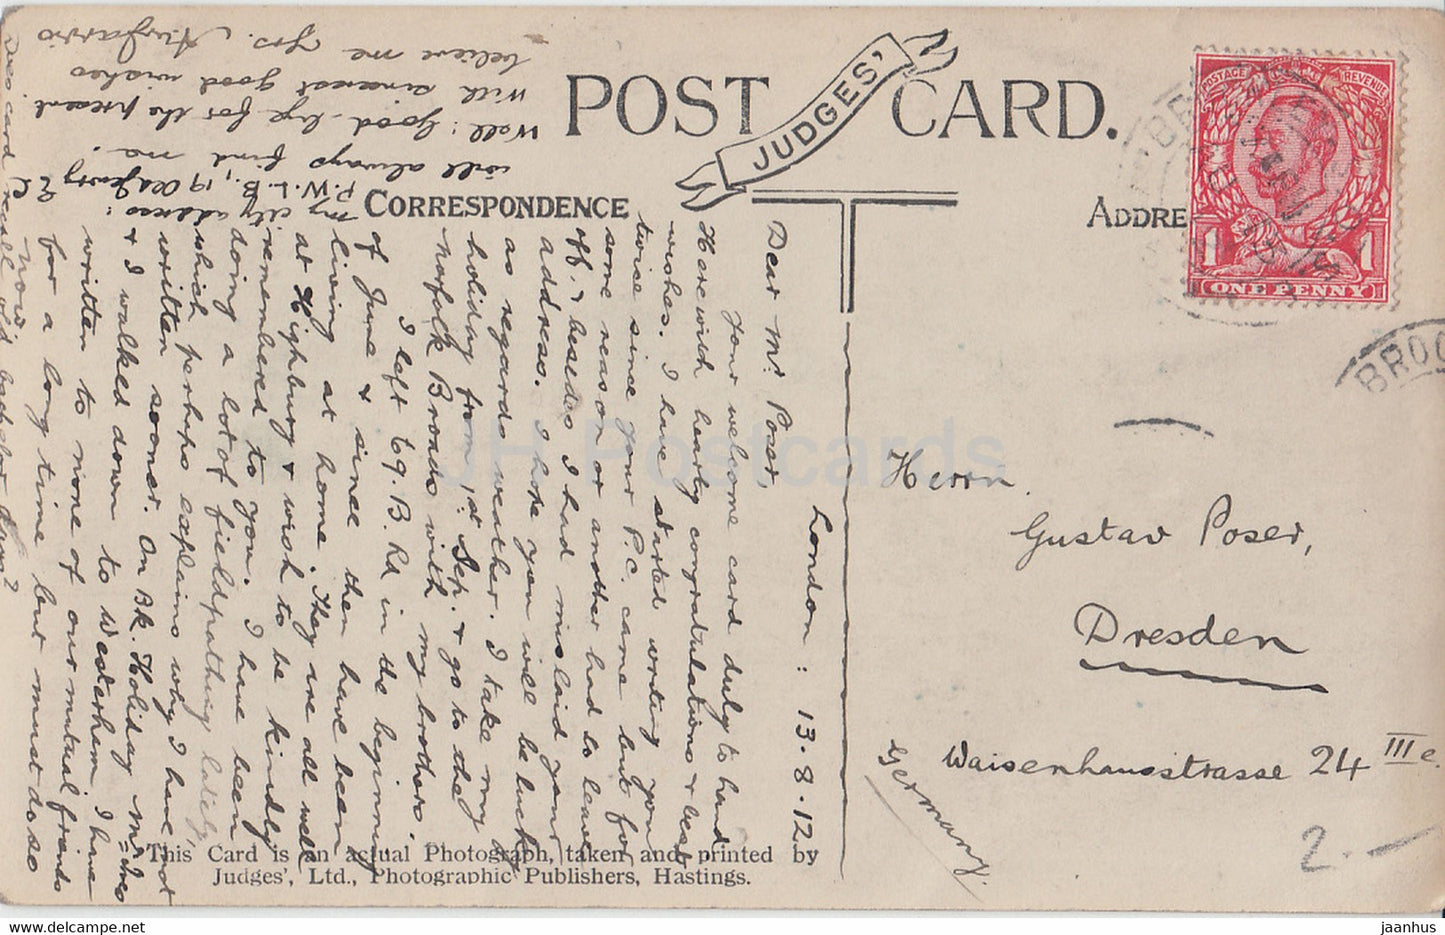 POST CARD.
JUDGES'
CORRESPONDENCE
ADDRE
POSTAGE REVENUE
1 1
ONE PENNY
BROC
London: 13.8.12
Dear Mr. Poser,
Your welcome card duly to hand
Herewith hearty congratulations & best
wishes. I have started writing you
twice since your P.C. came but for
some reason or another had to leave
off. & besides I had mislaid your
address. I hope you will be lucky
as regards weather. I take my
holiday from 1st Sep. & go to the
Norfolk Broads with my brothers.
I left 69. B. Rd in the beginning
of June & since then have been
living at home. They are all well
at Highbury & wish to be kindly
remembered to you. I have been
doing a lot of fieldpathing lately,
which perhaps explains why I have not
written sooner. On Bk. Holiday Mr
& I walked down to Westerham. I have
written to none of our mutual friends
for a long time but must do so
now.
my city address:
P.W.L.B., 19 Old Jewry E.C.
will always find me.
Well: Good-bye for the present
With sincerest good wishes
believe me yrs.
Herrn
Gustav Poser,
Dresden
Waisenhausstrasse 24 III e.
Germany.
2.-
This Card is an actual Photograph, taken and printed by
Judges', Ltd., Photographic Publishers, Hastings.
JH Postcards
www.hippostcard.com
jaanhus